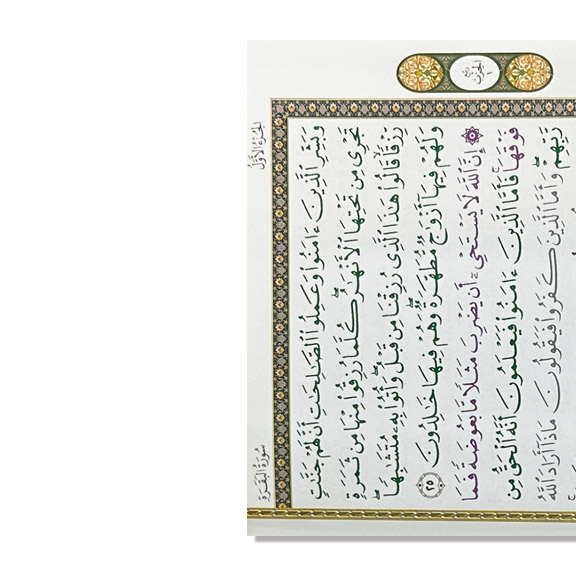 الجزء الأول
سورة البقرة
وَبَشِّرِ ٱلَّذِينَ ءَامَنُوا۟ وَعَمِلُوا۟ ٱلصَّـٰلِحَـٰتِ أَنَّ لَهُمْ جَنَّـٰتٍ
تَجْرِى مِن تَحْتِهَا ٱلْأَنْهَـٰرُ ۖ كُلَّمَا رُزِقُوا۟ مِنْهَا مِن ثَمَرَةٍ
رِّزْقًا ۙ قَالُوا۟ هَـٰذَا ٱلَّذِى رُزِقْنَا مِن قَبْلُ ۖ وَأُتُوا۟ بِهِۦ مُتَشَـٰبِهًا ۖ
وَلَهُمْ فِيهَآ أَزْوَٰجٌ مُّطَهَّرَةٌ ۖ وَهُمْ فِيهَا خَـٰلِدُونَ ٢٥
۞ إِنَّ ٱللَّهَ لَا يَسْتَحْىِۦٓ أَن يَضْرِبَ مَثَلًا مَّا بَعُوضَةً فَمَا
فَوْقَهَا ۚ فَأَمَّا ٱلَّذِينَ ءَامَنُوا۟ فَيَعْلَمُونَ أَنَّهُ ٱلْحَقُّ مِن
رَّبِّهِمْ ۖ وَأَمَّا ٱلَّذِينَ كَفَرُوا۟ فَيَقُولُونَ مَاذَآ أَرَادَ ٱللَّهُ